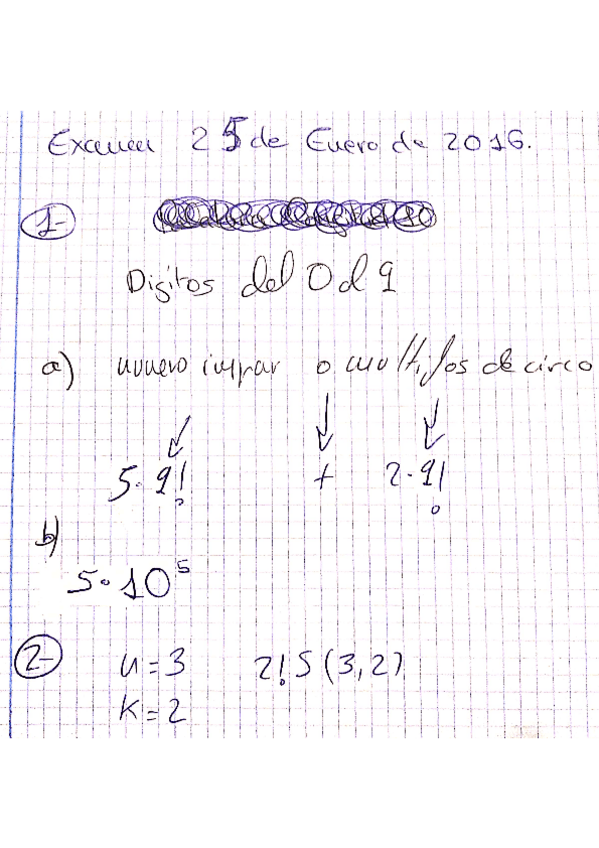 Examen 25 de Enero de 2016.
1-
Digitos del 0 al 9
a) numero impar o multiplos de cinco
5·9! + 2·9!
b)
5·10⁵
2- n=3 2!S(3,2)
K=2